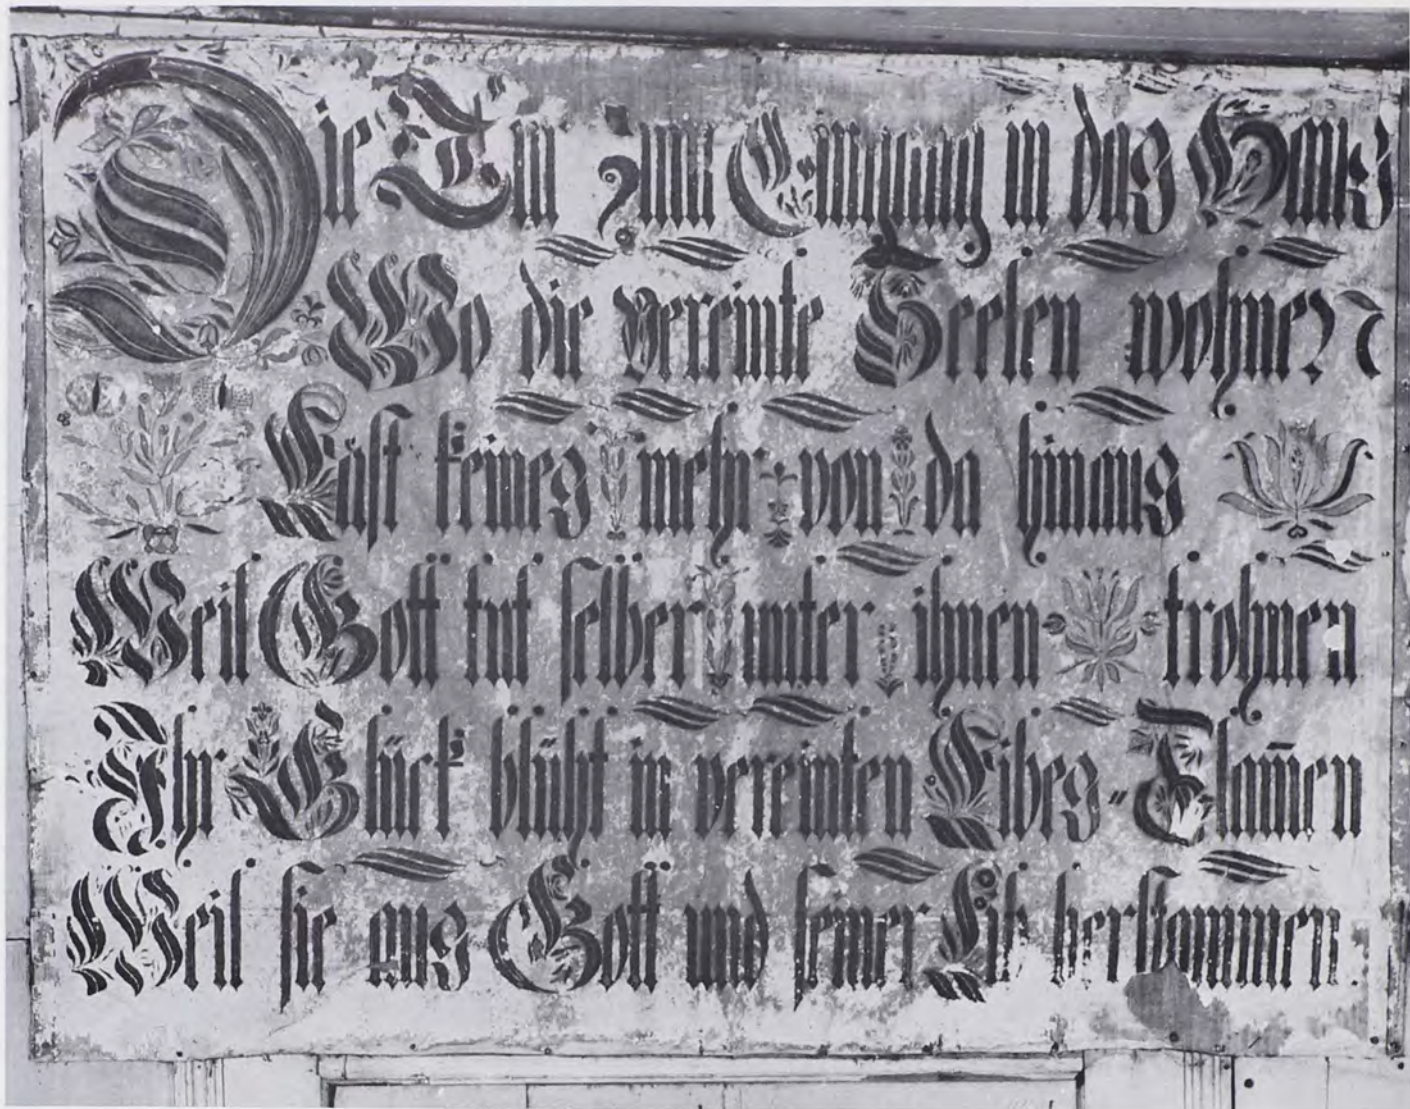 Die Tür zum Eingang in das Haus
Wo die vereinte Seelen wohnen
Läst keines mehr von da hinaus
Weil Gott tut selber unter ihnen trohnen
Ihr Glück blüht in vereinten Libes-Flam̄en
Weil sie aus Gott und seiner Lib herstammen.